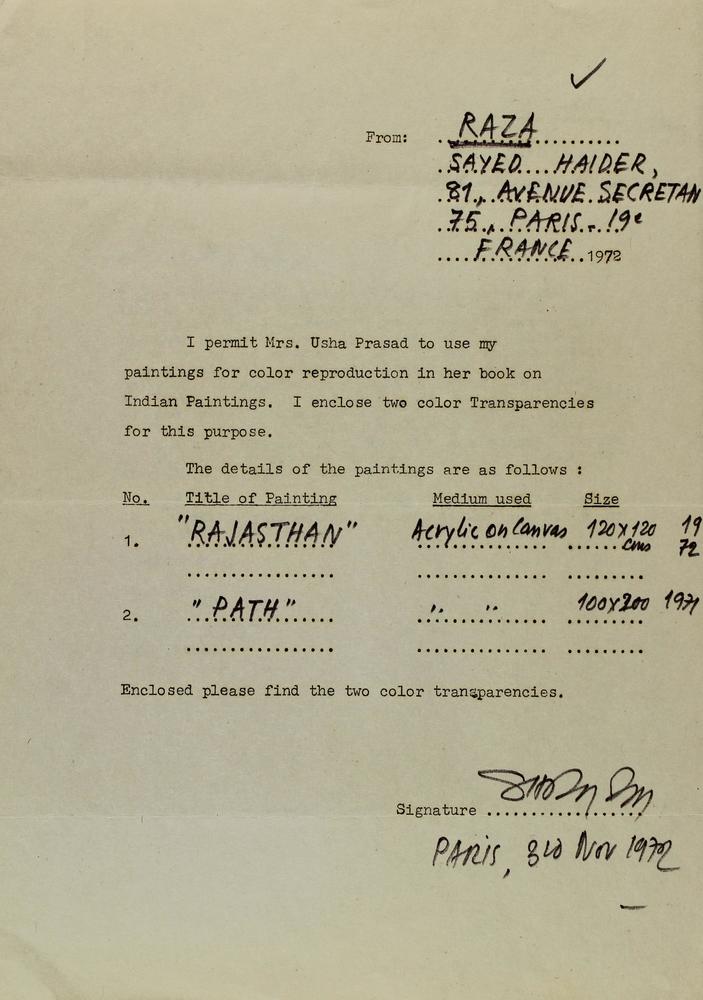 From: RAZA
SAYED HAIDER,
81, AVENUE SECRETAN
75, PARIS - 19e
FRANCE 1972
I permit Mrs. Usha Prasad to use my
paintings for color reproduction in her book on
Indian Paintings. I enclose two color Transparencies
for this purpose.
The details of the paintings are as follows :
No. Title of Painting Medium used Size
1. "RAJASTHAN" Acrylic on Canvas 120 x 120 19
cms 72
2. "PATH" " " 100 x 200 1971
Enclosed please find the two color transparencies.
Signature
PARIS, Nov 1972